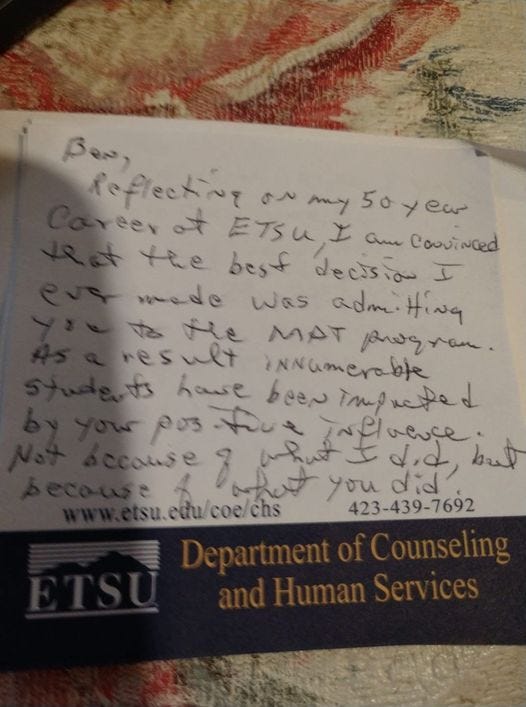 Ben,
Reflecting on my 50 year
Career at ETSU, I am convinced
that the best decision I
ever made was admitting
you to the MAT program.
As a result innumerable
students have been impacted
by your positive influence.
Not because of what I did, but
because of what you did.
www.etsu.edu/coe/chs 423-439-7692
Department of Counseling
ETSU and Human Services